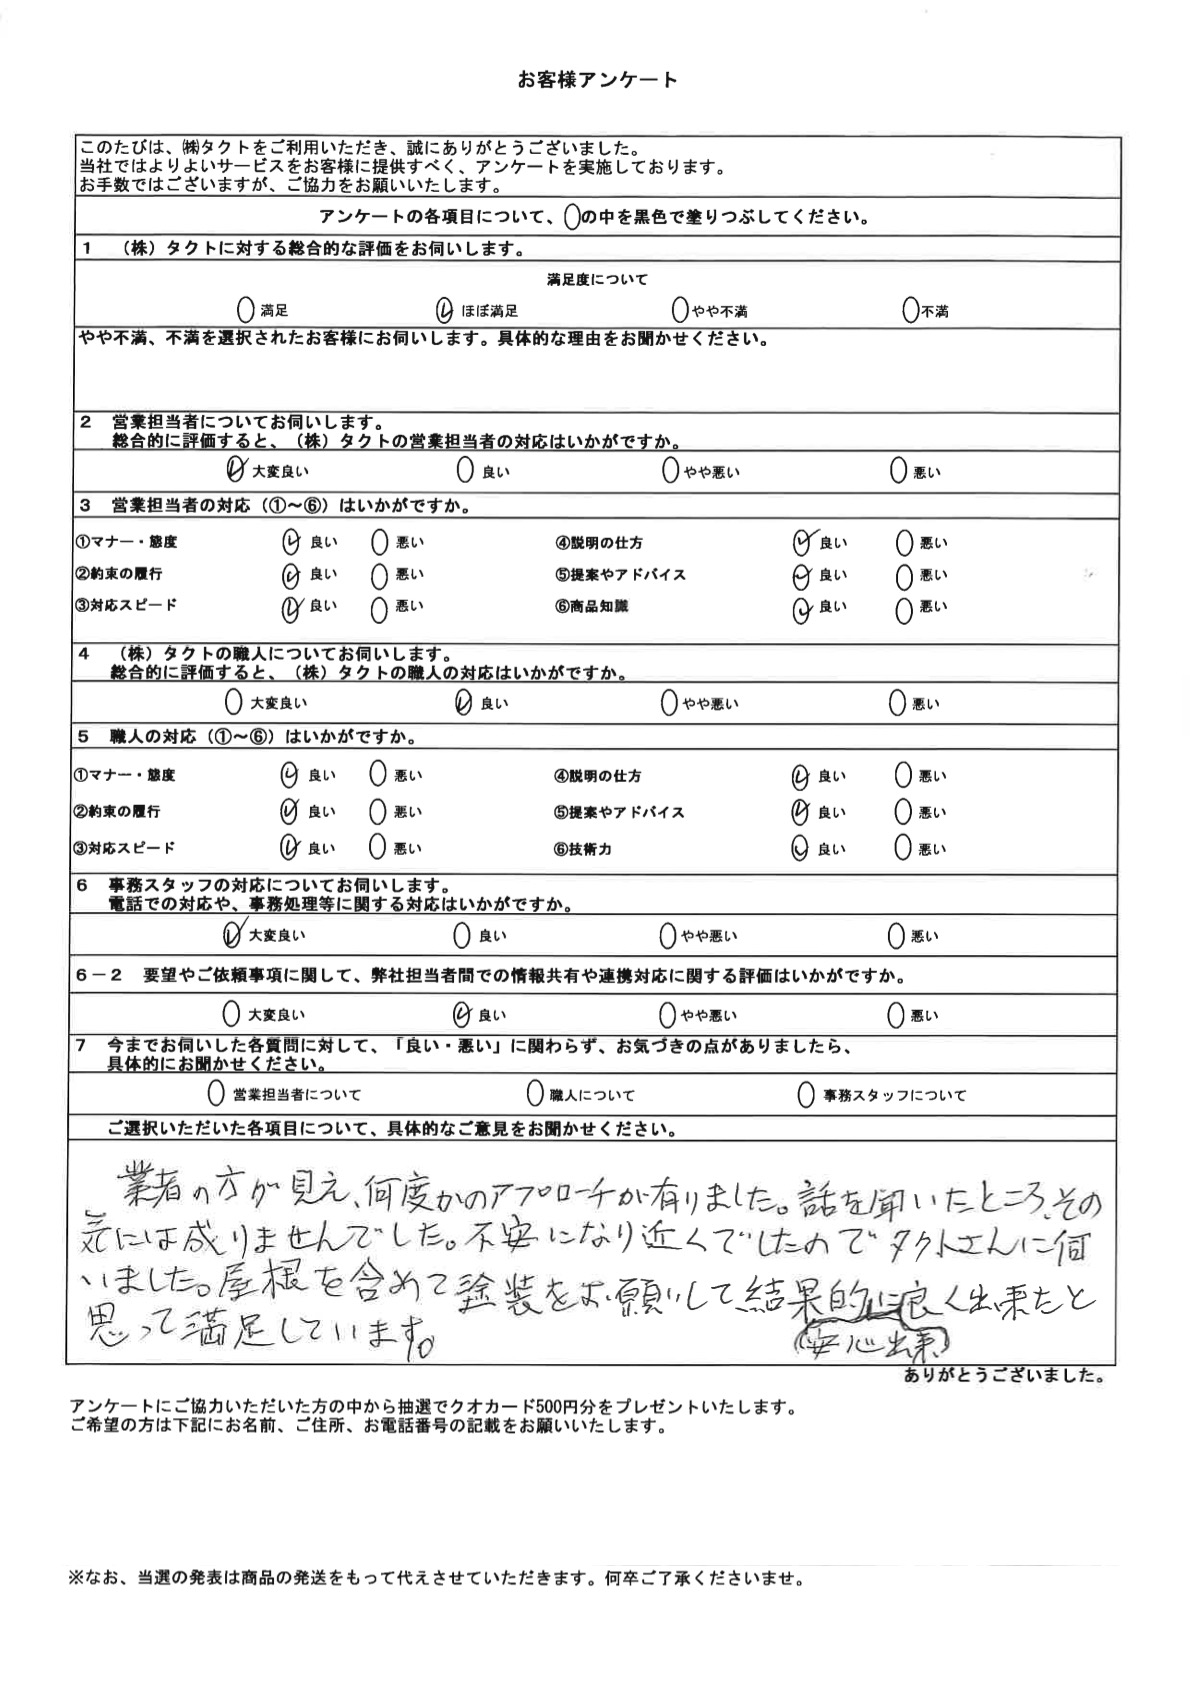 お客様アンケート
このたびは、㈱タクトをご利用いただき、誠にありがとうございました。
当社ではよりよいサービスをお客様に提供すべく、アンケートを実施しております。
お手数ではございますが、ご協力をお願いいたします。
アンケートの各項目について、◯の中を黒色で塗りつぶしてください。
1 （株）タクトに対する総合的な評価をお伺いします。
満足度について
満足 ほぼ満足 やや不満 不満
やや不満、不満を選択されたお客様にお伺いします。具体的な理由をお聞かせください。
2 営業担当者についてお伺いします。
総合的に評価すると、（株）タクトの営業担当者の対応はいかがですか。
大変良い 良い やや悪い 悪い
3 営業担当者の対応（①～⑥）はいかがですか。
①マナー・態度 良い 悪い ④説明の仕方 良い 悪い
②約束の履行 良い 悪い ⑤提案やアドバイス 良い 悪い
③対応スピード 良い 悪い ⑥商品知識 良い 悪い
4 （株）タクトの職人についてお伺いします。
総合的に評価すると、（株）タクトの職人の対応はいかがですか。
大変良い 良い やや悪い 悪い
5 職人の対応（①～⑥）はいかがですか。
①マナー・態度 良い 悪い ④説明の仕方 良い 悪い
②約束の履行 良い 悪い ⑤提案やアドバイス 良い 悪い
③対応スピード 良い 悪い ⑥技術力 良い 悪い
6 事務スタッフの対応についてお伺いします。
電話での対応や、事務処理等に関する対応はいかがですか。
大変良い 良い やや悪い 悪い
6－2 要望やご依頼事項に関して、弊社担当者間での情報共有や連携対応に関する評価はいかがですか。
大変良い 良い やや悪い 悪い
7 今までお伺いした各質問に対して、「良い・悪い」に関わらず、お気づきの点がありましたら、
具体的にお聞かせください。
営業担当者について 職人について 事務スタッフについて
ご選択いただいた各項目について、具体的なご意見をお聞かせください。
業者の方が見え、何度かのアプローチが有りました。話を聞いたところ、その
気には成りませんでした。不安になり近くでしたのでタクトさんに伺
いました。屋根を含めて塗装をお願いして結果的に良く出来たと
思って満足しています。 (安心出来)
ありがとうございました。
アンケートにご協力いただいた方の中から抽選でクオカード500円分をプレゼントいたします。
ご希望の方は下記にお名前、ご住所、お電話番号の記載をお願いいたします。
※なお、当選の発表は商品の発送をもって代えさせていただきます。何卒ご了承くださいませ。